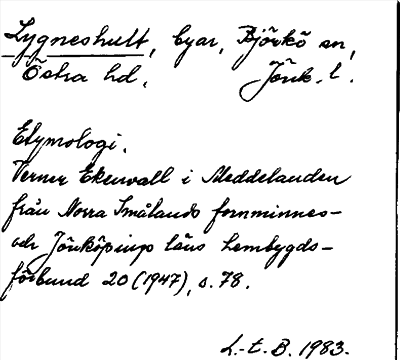 Lygneshult, byar, Björkö sn,
Östra hd, Jönk. l.
Etymologi.
Verner Ekenvall i Meddelanden
från Norra Smålands fornminnes-
och Jönköpings läns hembygds-
förbund 20 (1947), s. 78.
L.-t. B. 1983.